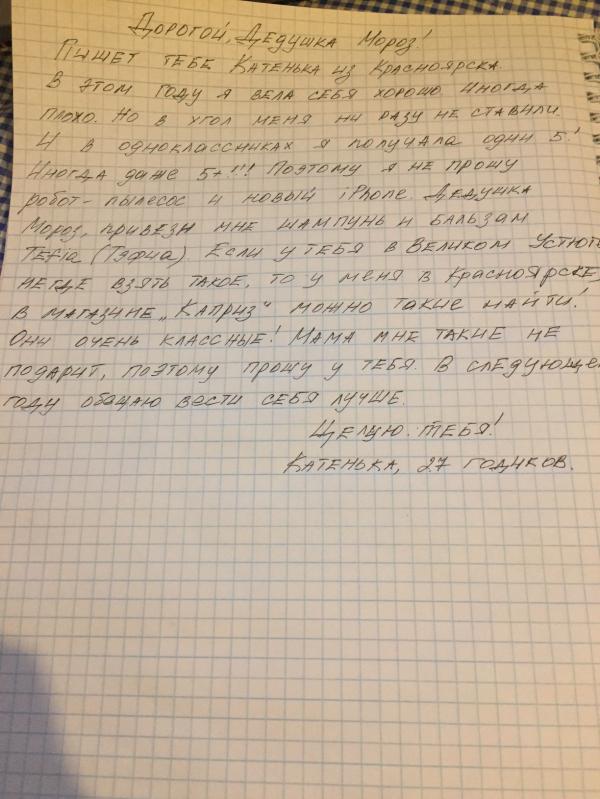 Дорогой, Дедушка Мороз!
Пишет тебе Катенька из Красноярска.
В этом году я вела себя хорошо иногда
плохо. Но в угол меня ни разу не ставили.
И в одноклассниках я получала одни 5!
Иногда даже 5+!!! Поэтому я не прошу
робот-пылесос и новый iPhone. Дедушка
Мороз, привези мне шампунь и бальзам
Tefia (Тэфиа). Если у тебя в Великом Устюге
негде взять такое, то у меня в Красноярске,
в магазине „Каприз" можно такие найти!
Они очень классные! Мама мне такие не
подарит, поэтому прошу у тебя. В следующем
году обещаю вести себя лучше.
Целую тебя!
Катенька, 27 годиков.